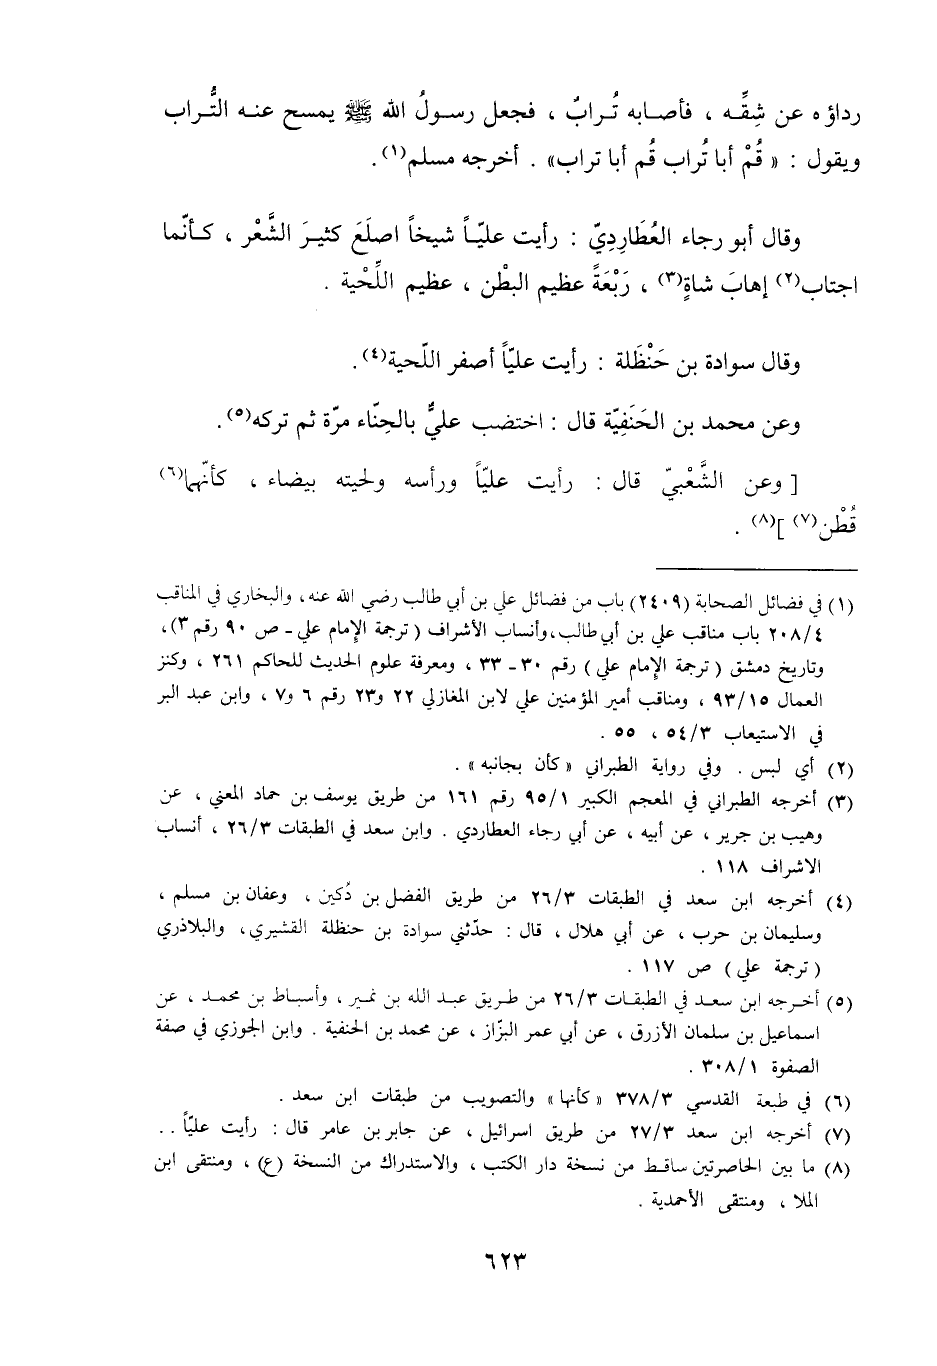 رداؤه عن شِقِّه ، فأصابه تُرابٌ ، فجعل رسولُ الله ﷺ يمسح عنه التُّراب
ويقول : « قُمْ أبا تُراب قُم أبا تراب» . أخرجه مسلم(١).
وقال أبو رجاء العُطَارِديّ : رأيت عليّاً شيخاً اصلَعَ كثيرَ الشَّعْر ، كأنّما
اجتاب(٢) إهابَ شاةٍ(٣) ، رَبْعَةً عظيم البطْن ، عظيم اللِّحْية .
وقال سوادة بن حَنْظَلة : رأيت عليّاً أصفر اللّحية(٤).
وعن محمد بن الحَنَفِيّة قال : اختضب عليٌّ بالحِنّاء مرّة ثم تركه(٥).
[ وعن الشَّعْبيّ قال : رأيت عليّاً ورأسه ولحيته بيضاء ، كأنّهما(٦)
قُطْن(٧) ](٨) .
(١) في فضائل الصحابة (٢٤٠٩) باب من فضائل علي بن أبي طالب رضي الله عنه، والبخاري في المناقب
٢٠٨/٤ باب مناقب علي بن أبي طالب، وأنساب الأشراف ( ترجمة الإمام علي - ص ٩٠ رقم ٣)،
وتاريخ دمشق ( ترجمة الإمام علي ) رقم ٣٠ - ٣٣ ، ومعرفة علوم الحديث للحاكم ٢٦١ ، وكنز
العمال ٩٣/١٥ ، ومناقب أمير المؤمنين علي لابن المغازلي ٢٢ و٢٣ رقم ٦ و٧ ، وابن عبد البر
في الاستيعاب ٥٤/٣ ، ٥٥ .
(٢) أي لبس . وفي رواية الطبراني «كأن بجانبه» .
(٣) أخرجه الطبراني في المعجم الكبير ٩٥/١ رقم ١٦١ من طريق يوسف بن حماد المعني ، عن
وهيب بن جرير ، عن أبيه ، عن أبي رجاء العطاردي . وابن سعد في الطبقات ٢٦/٣ ، أنساب
الاشراف ١١٨ .
(٤) أخرجه ابن سعد في الطبقات ٢٦/٣ من طريق الفضل بن دُكين ، وعفان بن مسلم ،
وسليمان بن حرب ، عن أبي هلال ، قال : حدّثني سوادة بن حنظلة القشيري، والبلاذري
( ترجمة علي ) ص ١١٧ .
(٥) أخرجه ابن سعد في الطبقات ٢٦/٣ من طريق عبد الله بن نمير ، وأسباط بن محمد ، عن
اسماعيل بن سلمان الأزرق ، عن أبي عمر البزّاز ، عن محمد بن الحنفية . وابن الجوزي في صفة
الصفوة ٣٠٨/١ .
(٦) في طبعة القدسي ٣٧٨/٣ «كأنها» والتصويب من طبقات ابن سعد .
(٧) أخرجه ابن سعد ٢٧/٣ من طريق اسرائيل ، عن جابر بن عامر قال : رأيت عليّاً . .
(٨) ما بين الحاصرتين ساقط من نسخة دار الكتب ، والاستدراك من النسخة (ع) ، ومنتقى ابن
الملا ، ومنتقى الأحمدية .
٦٢٣